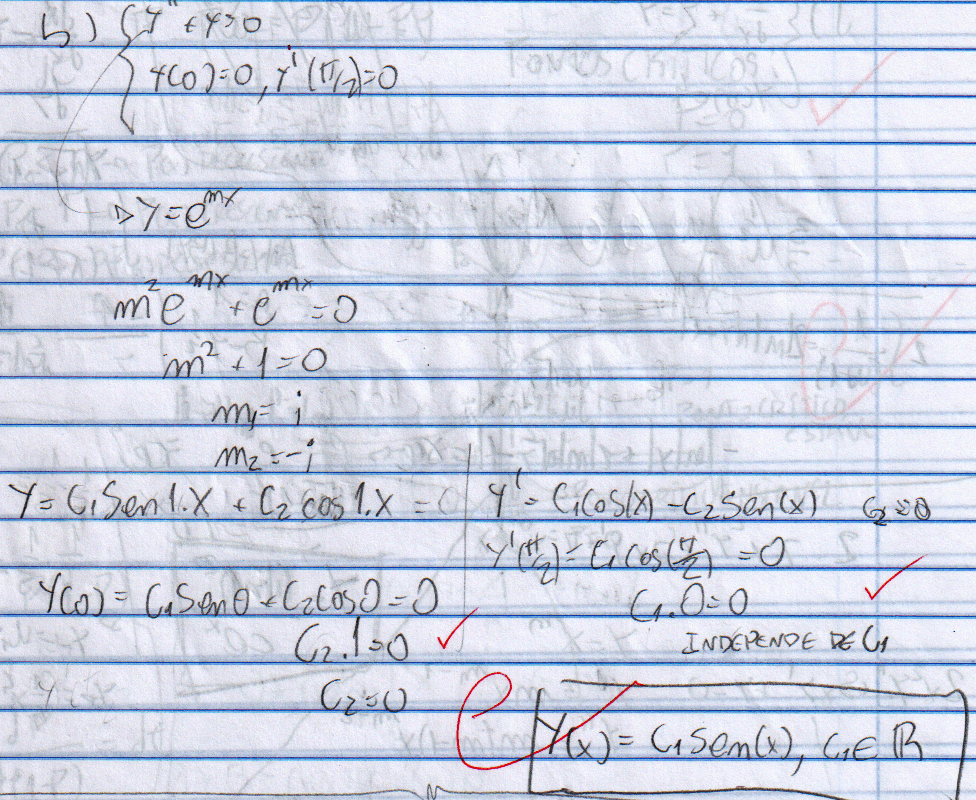 b) { y'' + y = 0
y(0)=0, y'(π/2)=0
▷ y = e^{mx}
m² e^{mx} + e^{mx} = 0
m² + 1 = 0
m₁ = i
m₂ = -i
y = C₁ Sen 1.x + C₂ cos 1.x = 0
y(0) = C₁ Sen 0 + C₂ Cos 0 = 0
C₂ . 1 = 0
C₂ = 0
y' = C₁ Cos(x) - C₂ Sen(x) C₂ = 0
y'(π/2) = C₁ Cos(π/2) = 0
C₁ . 0 = 0
INDEPENDE DE C₁
y(x) = C₁ Sen(x), C₁ ∈ ℝ